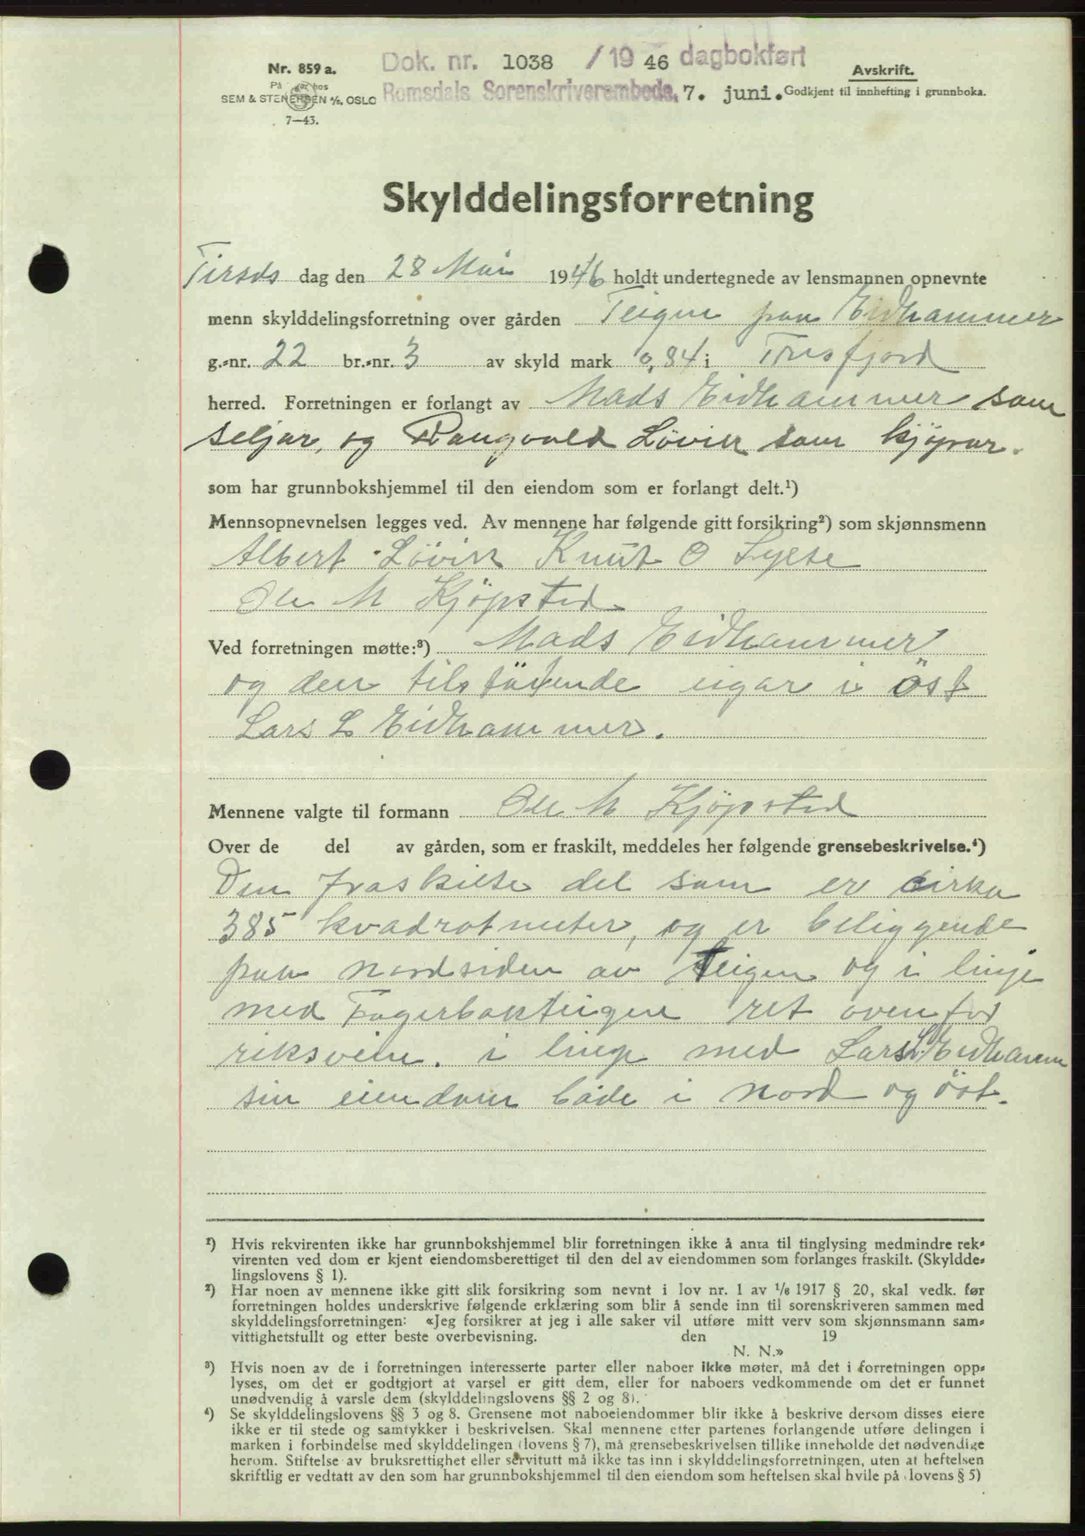 Dok. nr. 1038 /19 46 dagbokført
Nr. 859 a.
Avskrift.
På hos
SEM & STENERSEN A/S, OSLO
Romsdals Sorenskriverembede, 7. juni.
Godkjent til innhefting i grunnboka.
7—43.
Skylddelingsforretning
Tirsds dag den 28 Mai 1946 holdt undertegnede av lensmannen opnevnte
menn skylddelingsforretning over gården Teigen paa Eidhammer
g.-nr. 22 br.-nr. 3 av skyld mark 0,84 i Tresfjord
herred. Forretningen er forlangt av Mads Eidhammer som
seljar, og Rangvald Løvik som kjøpar.
som har grunnbokshjemmel til den eiendom som er forlangt delt.¹)
Mennsopnevnelsen legges ved. Av mennene har følgende gitt forsikring²) som skjønnsmenn
Albert Løvik Knut O Sylte
Ole M Kjöpstad
Ved forretningen møtte:³) Mads Eidhammer
og den tilstötende eigar i öst
Lars L Eidhammer.
Mennene valgte til formann Ole M Kjöpstad
Over de del av gården, som er fraskilt, meddeles her følgende grensebeskrivelse.⁴)
Den fraskilte del som er cirka
385 kvadratmeter, og er beliggende
paa nordsiden av Teigen og i linje
med Fagerbakteigen ret ovenfor
riksveien. i linje med Lars L. Eidhamm
sin eiendom både i nord og öst.
¹) Hvis rekvirenten ikke har grunnbokshjemmel blir forretningen ikke å anta til tinglysing medmindre rek-
virenten ved dom er kjent eiendomsberettiget til den del av eiendommen som forlanges fraskilt. (Skyldde-
lingslovens § 1).
²) Har noen av mennene ikke gitt slik forsikring som nevnt i lov nr. 1 av 1/6 1917 § 20, skal vedk. før
forretningen holdes underskrive følgende erklæring som blir å sende inn til sorenskriveren sammen med
skylddelingsforretningen: «Jeg forsikrer at jeg i alle saker vil utføre mitt verv som skjønnsmann sam-
vittighetsfullt og etter beste overbevisning. den 19
N. N.»
³) Hvis noen av de i forretningen interesserte parter eller naboer ikke møter, må det i forretningen opp-
lyses, om det er godtgjort at varsel er gitt dem, eller for naboers vedkommende om det er funnet
unødvendig å varsle dem (skylddelingslovens §§ 2 og 8).
⁴) Se skylddelingslovens §§ 3 og 8. Grensene mot naboeiendommer blir ikke å beskrive dersom disses eiere
ikke er til stede og samtykker i beskrivelsen. Skal mennene etter partenes forlangende utføre delingen i
marken i forbindelse med skylddelingen (lovens § 7), må grensebeskrivelsen tillike inneholde det nødvendige
herom. Stiftelse av bruksrettighet eller servitutt må ikke tas inn i skylddelingsforretningen, uten at heftelsen
skriftlig er vedtatt av den som har grunnbokshjemmel til den eiendom som heftelsen skal hvile på (lovens § 5)